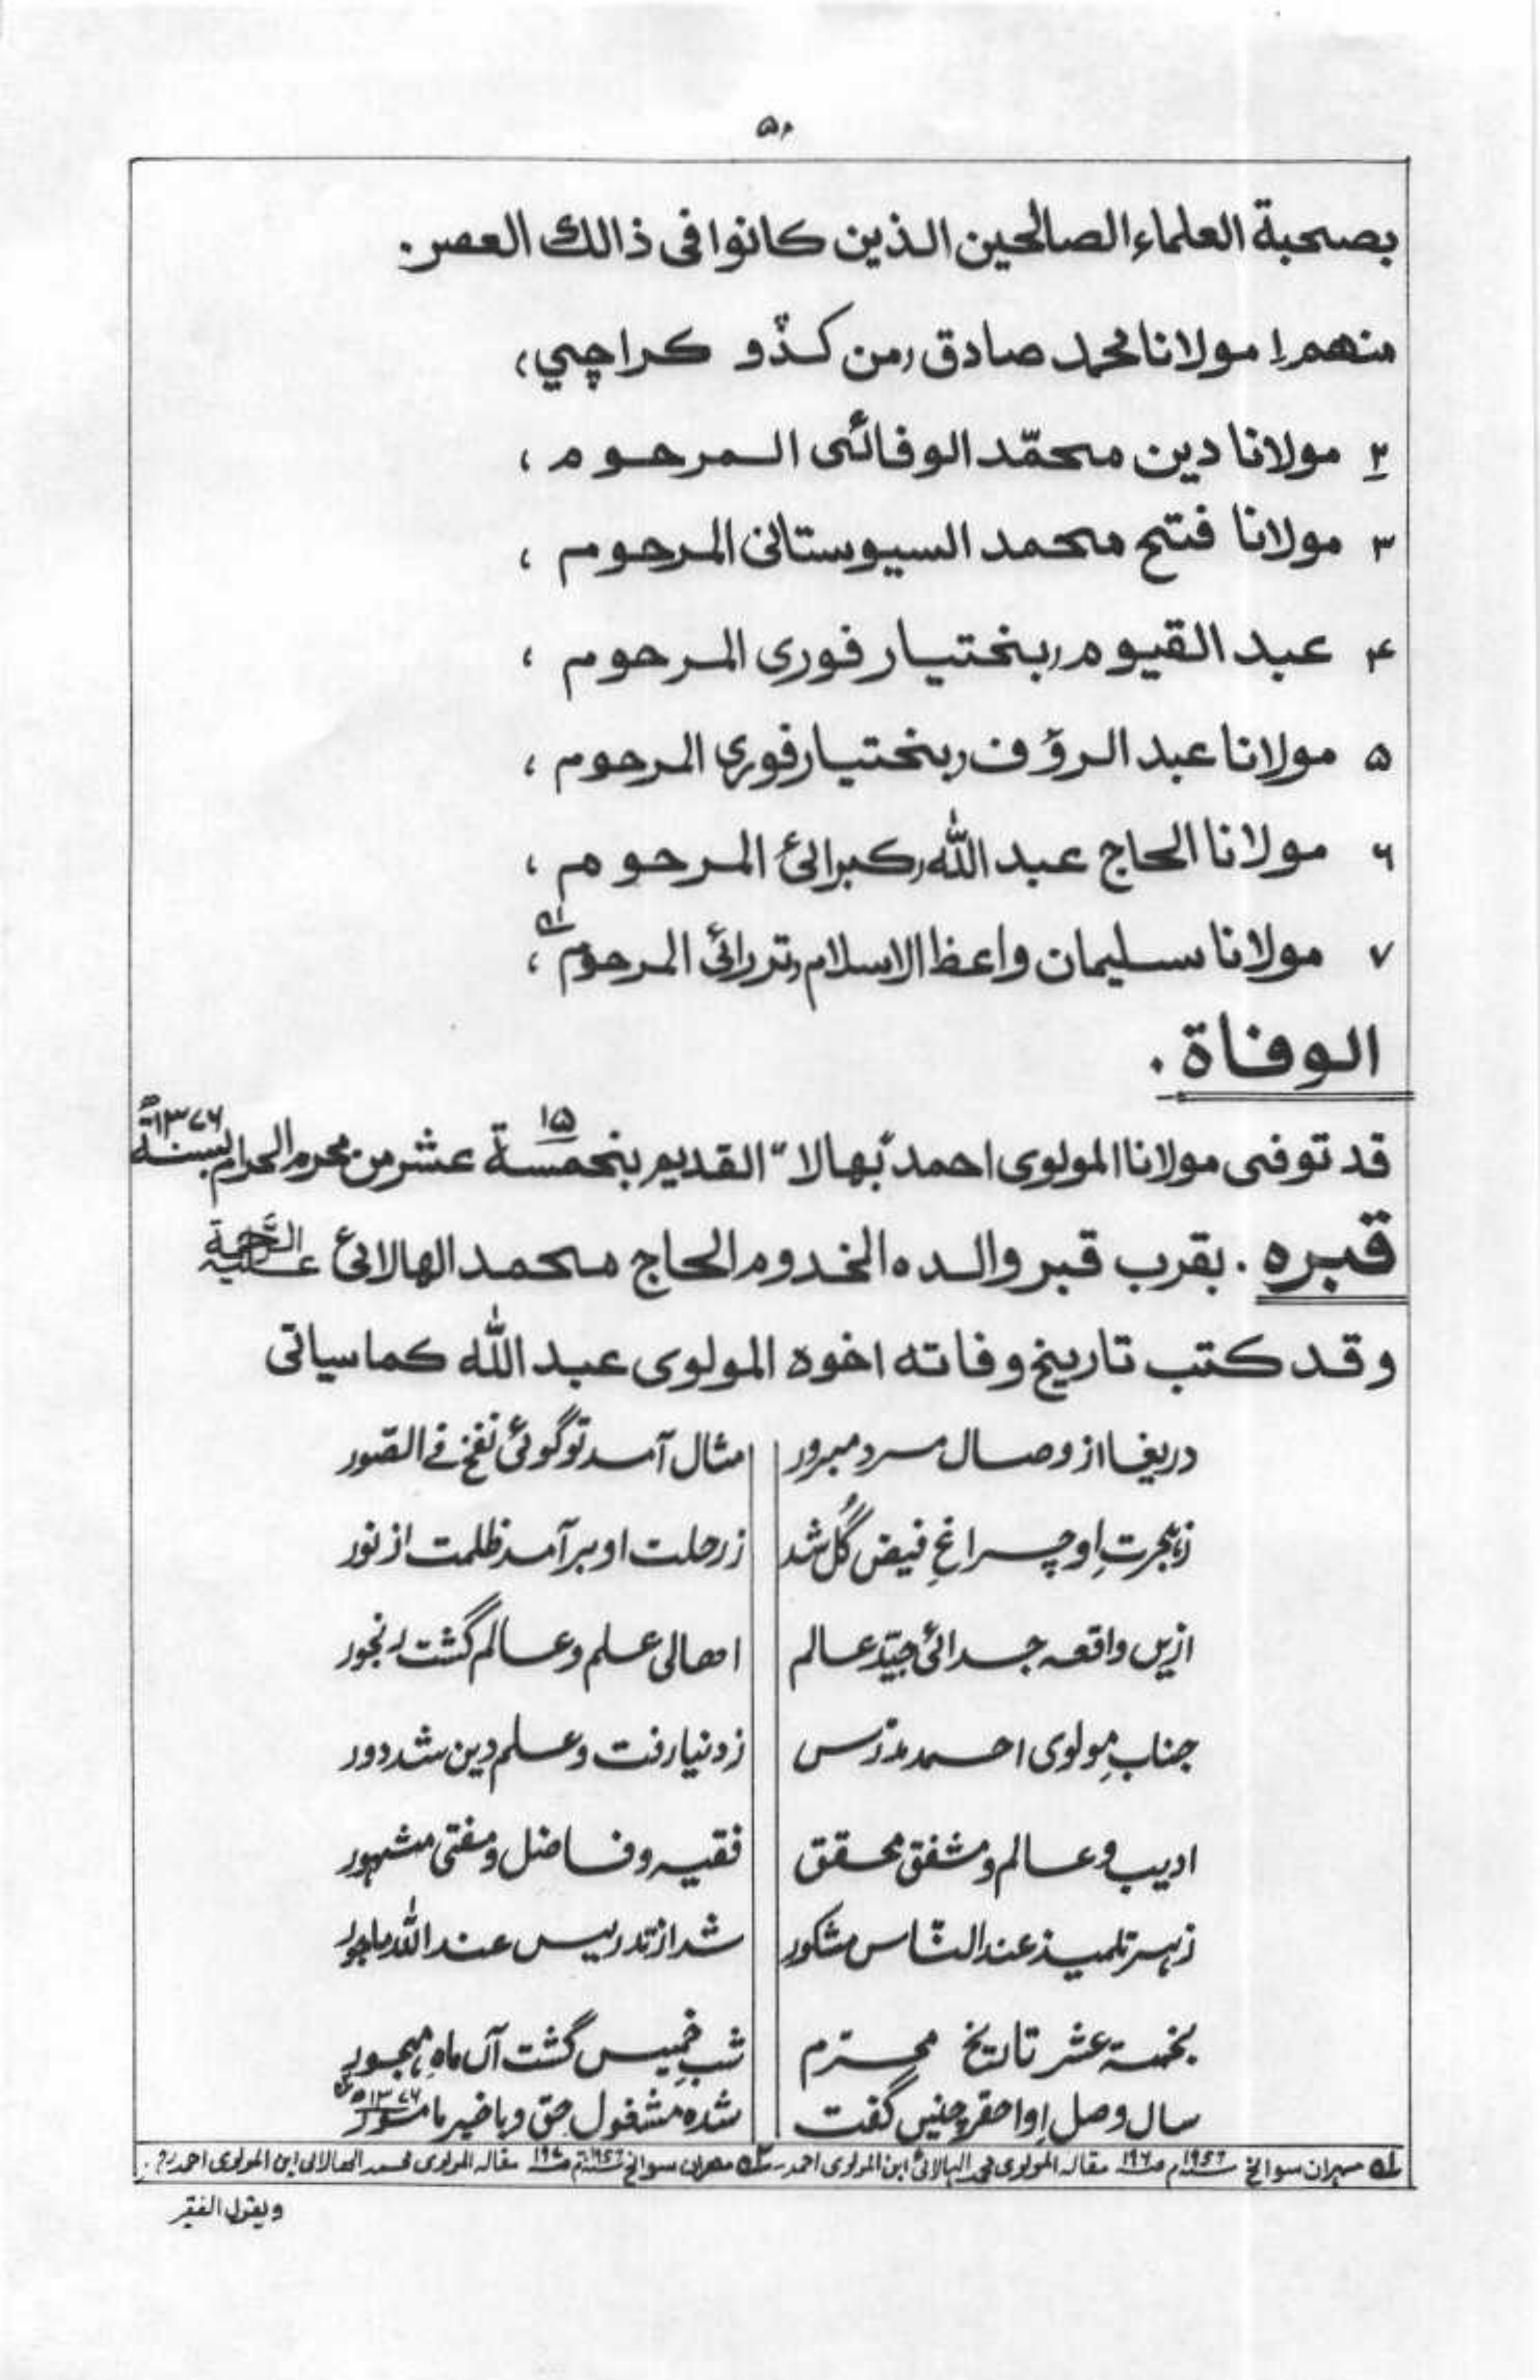 ۵۰
بصحبة العلماء الصالحين الذين كانوا فی ذالك العصر۔
منهم ۱ مولانا محمد صادق (من کڈو کراچي)،
۲ مولانا دين محمّد الوفائی المرحوم ،
۳ مولانا فتح محمد السيوستانی المرحوم ،
۴ عبد القيوم (بختيارفوری المرحوم ،
۵ مولانا عبد الرؤف (بختيارفوری المرحوم ،
۶ مولانا الحاج عبد الله (كبرالئ المرحوم ،
۷ مولانا سليمان واعظ الاسلام (تررائی المرحوم ،
الوفاة .
قد توفى مولانا المولوی احمد "بهالا" القديم بخمسة عشر ۱۵ من محرم الحرام بسنة ۱۳۷۶ھ
قبره . بقرب قبر والده المخدوم الحاج محمد الهالائ عليه الرحمة
وقد كتب تاريخ وفاته اخوه المولوی عبد الله كما سياتی
دریغا از وصال مرد مبرور | مثال آمد تو گوئی نفخ فے الصّور
ز ہجرتِ او چراغِ فیض گُل شد | ز رحلت او بر آمد ظلمت از نور
ازیں واقعہ جدائی جیّد عالم | اھالی علم و عالم گشت رنجور
جنابِ مولوی احمد مدرّس | ز دنیا رفت و علم دین شد دور
ادیب و عالم و مشفق محقق | فقیہ و فاضل و مفتی مشہور
ز ہر تلمیذ عند النّاس مشکور | شد از تدریس عند اللّٰہ ماجور
بخمسۃ عشر تاریخ محرّم | شبِ خمیس گشت آں ماہِ مہجور
سال وصل او احقر چنیں گفت | شدہ مشغول حق و باخیر مامور ۱۳۷۶ھ
۱ مہران سوانح ۱۹۵۶م ص ۱۹۶ مقالہ المولوی الہالائی ابن المولوی احمد ۲ مھران سوانح م ص مقالہ المولوی محمد الھالائی ابن المولوی احمد
ویقول الفقیر